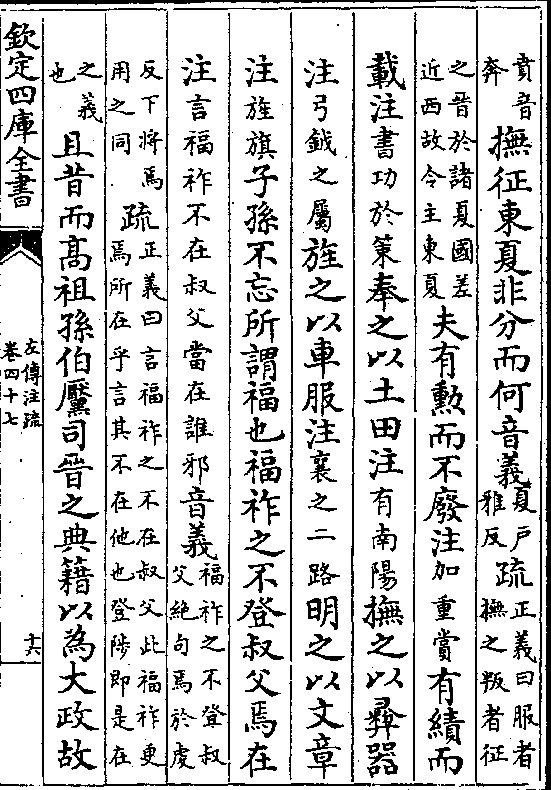 賁音
奔
撫征東夏非分而何音義
夏戶
雅反
疏
正義曰服者
撫之叛者征
之晉於諸夏國差
近西故令主東夏
夫有勲而不廢注加重賞有績而
載注書功於策奉之以土田注有南陽撫之以彛器
注弓鉞之屬旌之以車服注襄之二路明之以文章
注旌旗子孫不忘所謂福也福祚之不登叔父焉在
注言福祚不在叔父當在誰邪音義
福祚之不登叔
父絶句焉於虔
反下將焉
用之同
疏
正義曰言福祚之不在叔父此福祚更
焉所在乎言其不在他也登陟即是在
之義
也
且昔而高祖孫伯黶司晉之典籍以為大政故
欽定四庫全書
左傳注疏
卷四十七
十六